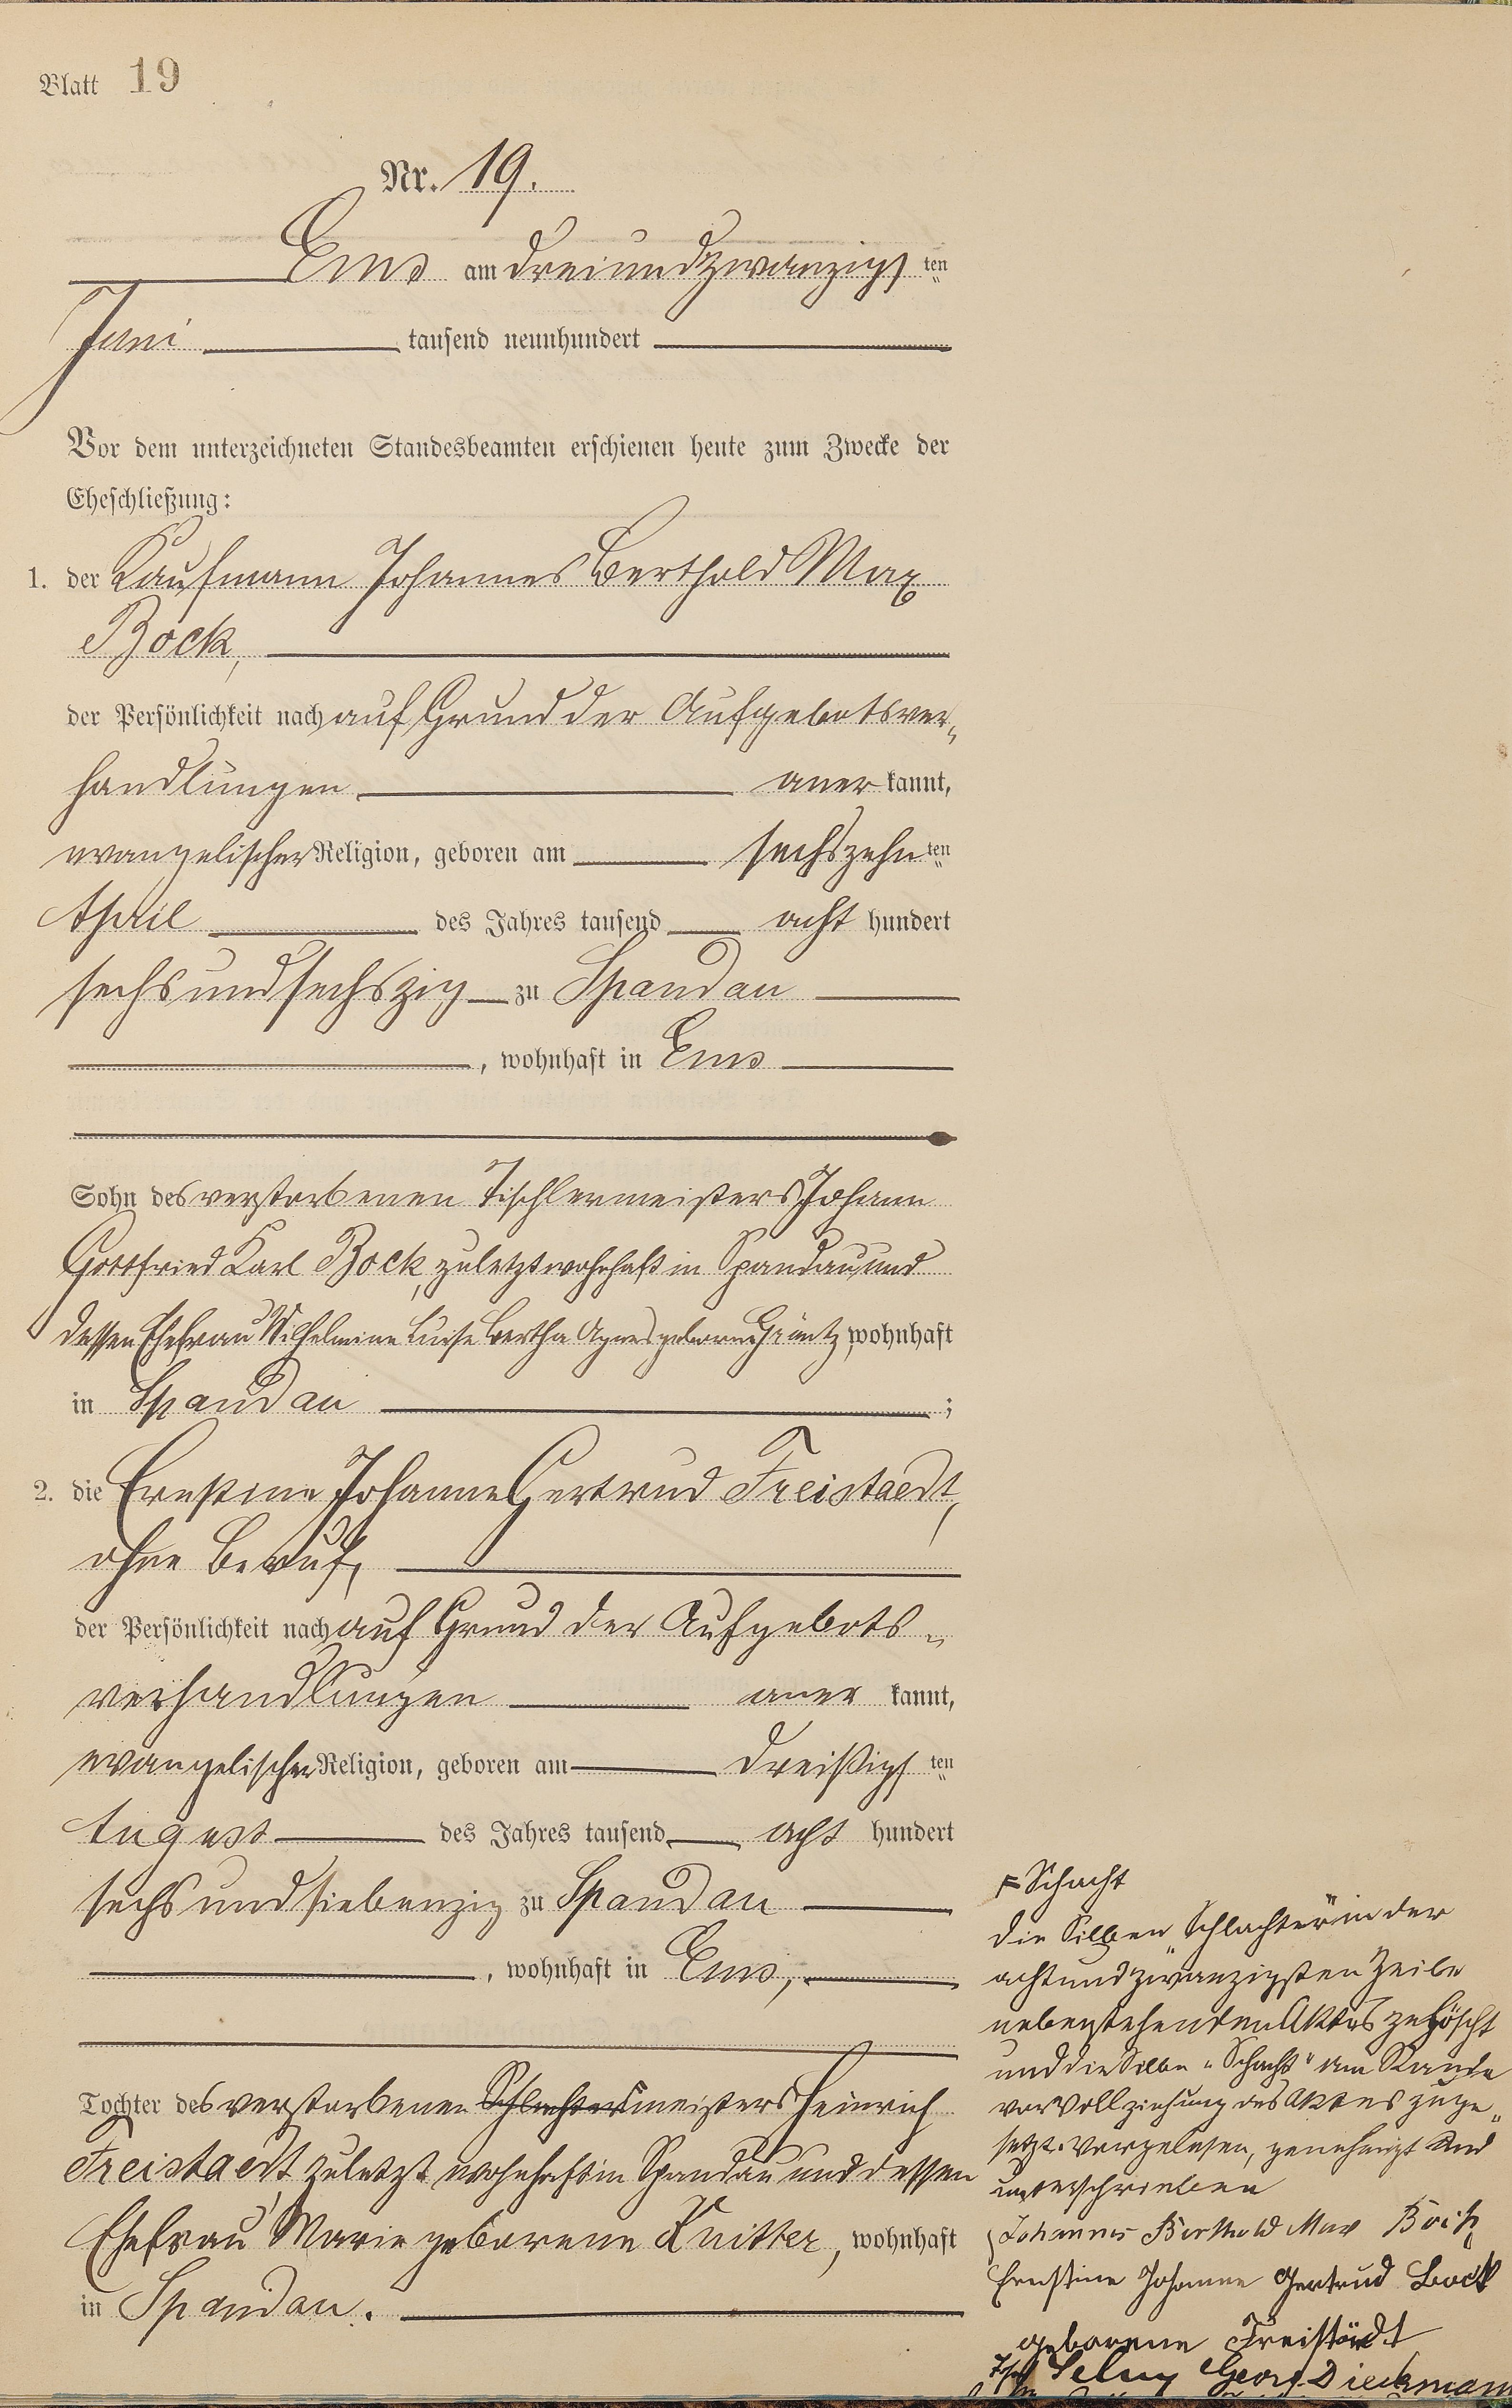 Blatt 19
Nr. 19.
Ems am dreiundzwanzigs ten
Juni tausend neunhundert
Vor dem unterzeichneten Standesbeamten erschienen heute zum Zwecke der
Eheschließung:
1. der Kaufmann Johannes Berthold Max
Bock,
der Persönlichkeit nach auf Grund der Aufgebotsver„
handlungen aner kannt,
evangelischer Religion, geboren am sechszehn ten
April des Jahres tausend acht hundert
sechsundsechszig zu Spandau
, wohnhaft in Ems
Sohn des verstorbenen Tischlermeisters Johann
Gottfried Karl Bock, zuletzt wohnhaft in Spandau und
dessen Ehefrau Wilhelmine Luise Bertha Agnes geborene wohnhaft
in Spandau ;
2. die Ernestine Johanne Gertrud Freistaedt,
ohne Beruf,
der Persönlichkeit nach auf Grund der Aufgebots„
verhandlungen aner kannt,
evangelischer Religion, geboren am dreißigs ten
August des Jahres tausend acht hundert
sechsundsiebenzig zu Spandau
, wohnhaft in Ems,
Tochter des verstorbenen Schlachtermeisters Heinrich
Freistaedt, zuletzt wohnhaft in Spandau und dessen
Ehefrau Marie geborene Knitter, wohnhaft
in Spandau.
Schacht
Die Silben „Schlachter“ in der
achtundzwanzigsten Zeile
nebenstehenden Aktes gelöscht
und die Silbe „Schacht“ am Rande
vor Vollziehung des Aktes zuge„
setzt. Vorgelesen, genehmigt und
unterschrieben
Johannes Berthold Max Bock
Ernestine Johanne Gertrud Bock
geborene Freistädt
Georg Dieckmann